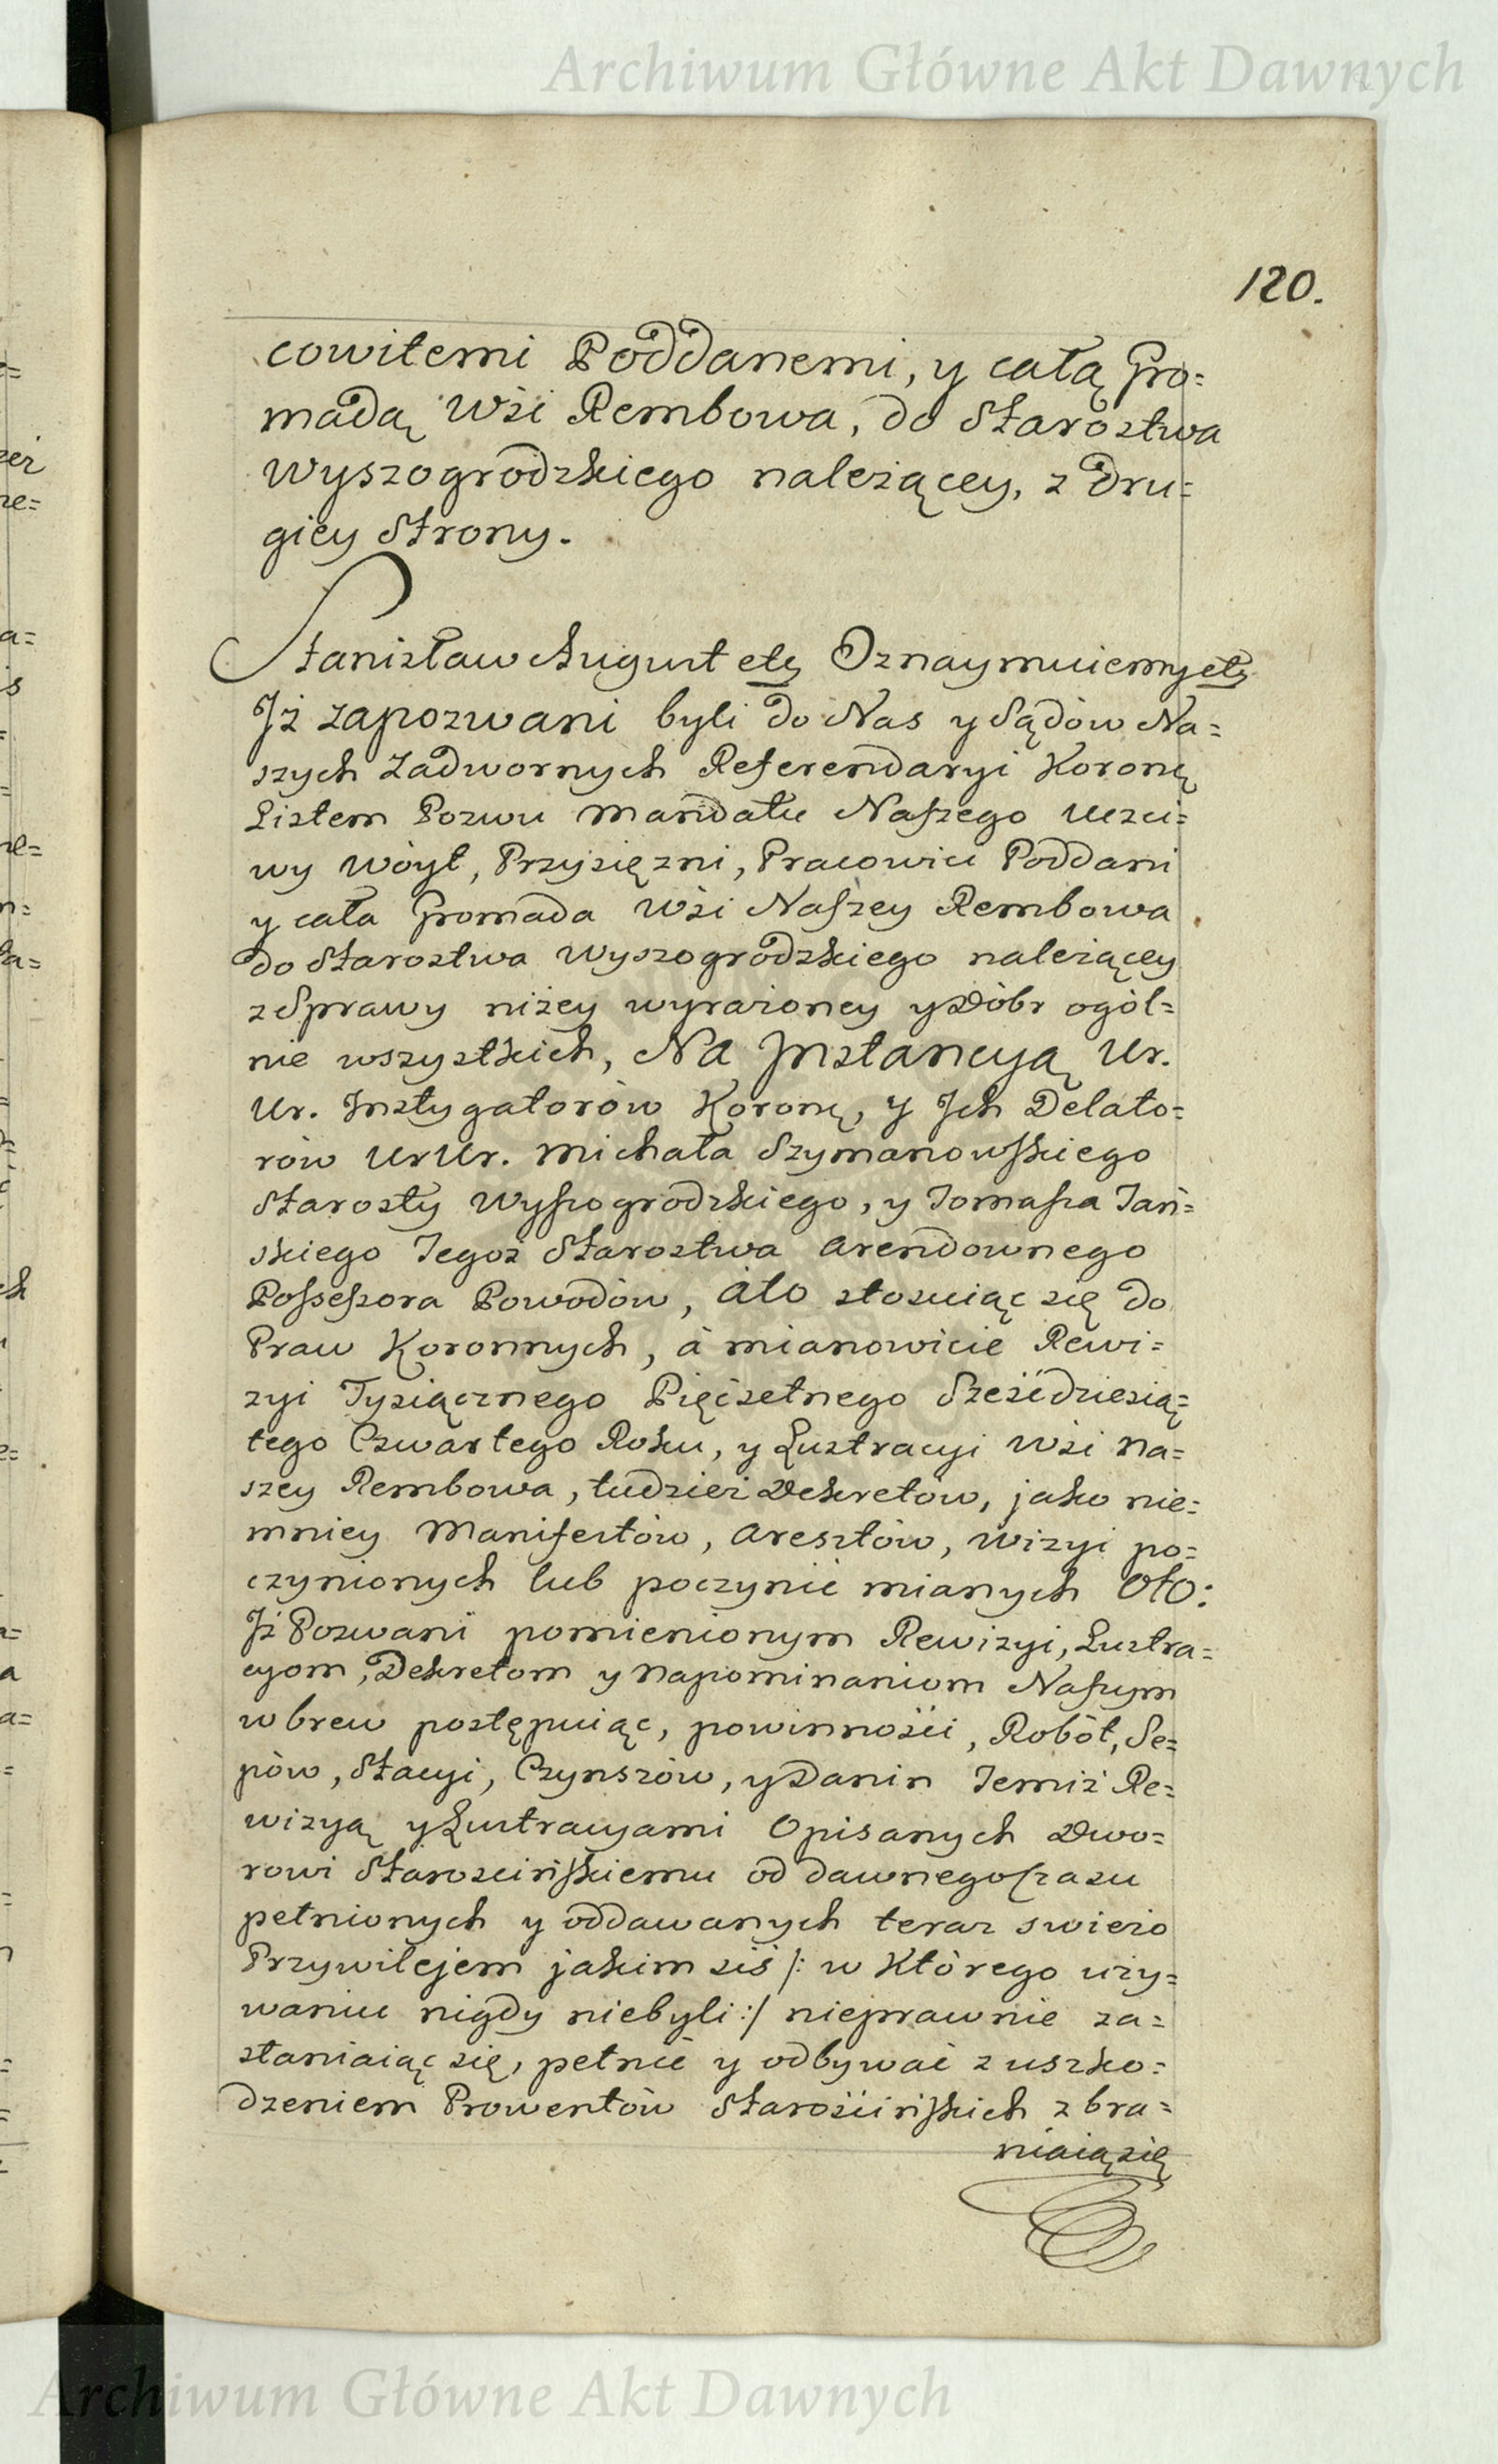 Archiwum Główne Akt Dawnych
120.
cowitemi Poddanemi, y całą Gro=
madą Wsi Rembowa, do Starostwa
Wyszogrodzkiego należącey, z dru=
giey Strony.
Stanisław August etc Oznaymuiemy etc
Jż zapozwani byli do Nas y Sądów Na=
szych Zadwornych Referendaryi Koronę
Listem Pozwu Mandatu Naszego Uczci=
wy Wóyt, Przysięzni, Pracowici Poddani
y cała Gromada Wsi Naszey Rembowa
do Starostwa Wyszogrodzkiego należącey
z Sprawy niżey wyrażoney y Dóbr ogól=
nie wszystkich, Na Jnstancyą Ur.
Ur. Jnstygatorów Koronę, y Jch Delato=
rów UrUr. Michała Szymanowskiego
Starosty Wyszogrodzkiego, y Tomasza Jań=
skiego Tegoż Starostwa Arendownego
Possessora Powodów, Ato stosuiąc się do
Praw Koronnych, á mianowicie Rewi=
zyi Tysiącznego Pięćsetnego Sześćdziesią=
tego Czwartego Roku, y Lustracyi Wsi Na=
szey Rembowa, tudzież Dekretów, jako nie=
mniey Manifestów, Aresztów, Wizyi po=
czynionych lub poczynić mianych Oto:
Jż Pozwani pomienionym Rewizyi, Lustra=
cyom, Dekretom y Napominaniom Naszym
wbrew postępuiąc, powinności, Robót, Se=
pów, Stacyi, Czynszów, y Danin Temiż Re=
wizyą y Lustracyami Opisanych Dwo=
rowi Starościńskiemu od dawnego Czasu
pełnionych y oddawanych teraz swieżo
Przywilejem jakimsiś /: w Którego uży=
waniu nigdy niebyli :/ nieprawnie za=
słaniaiąc się, pełnić y odbywać z uszko=
dzeniem Prowentów Starościńskich zbra=
niaią się
Archiwum Główne Akt Dawnych